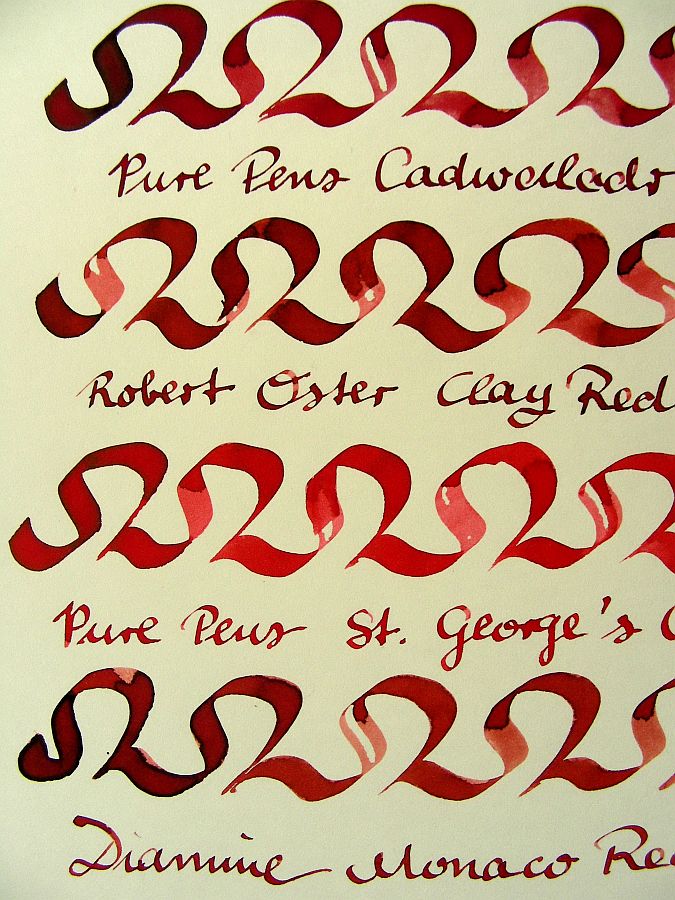 Pure Pens Cadwalladr
Robert Oster Clay Red
Pure Pens St. George's
Diamine Monaco Red